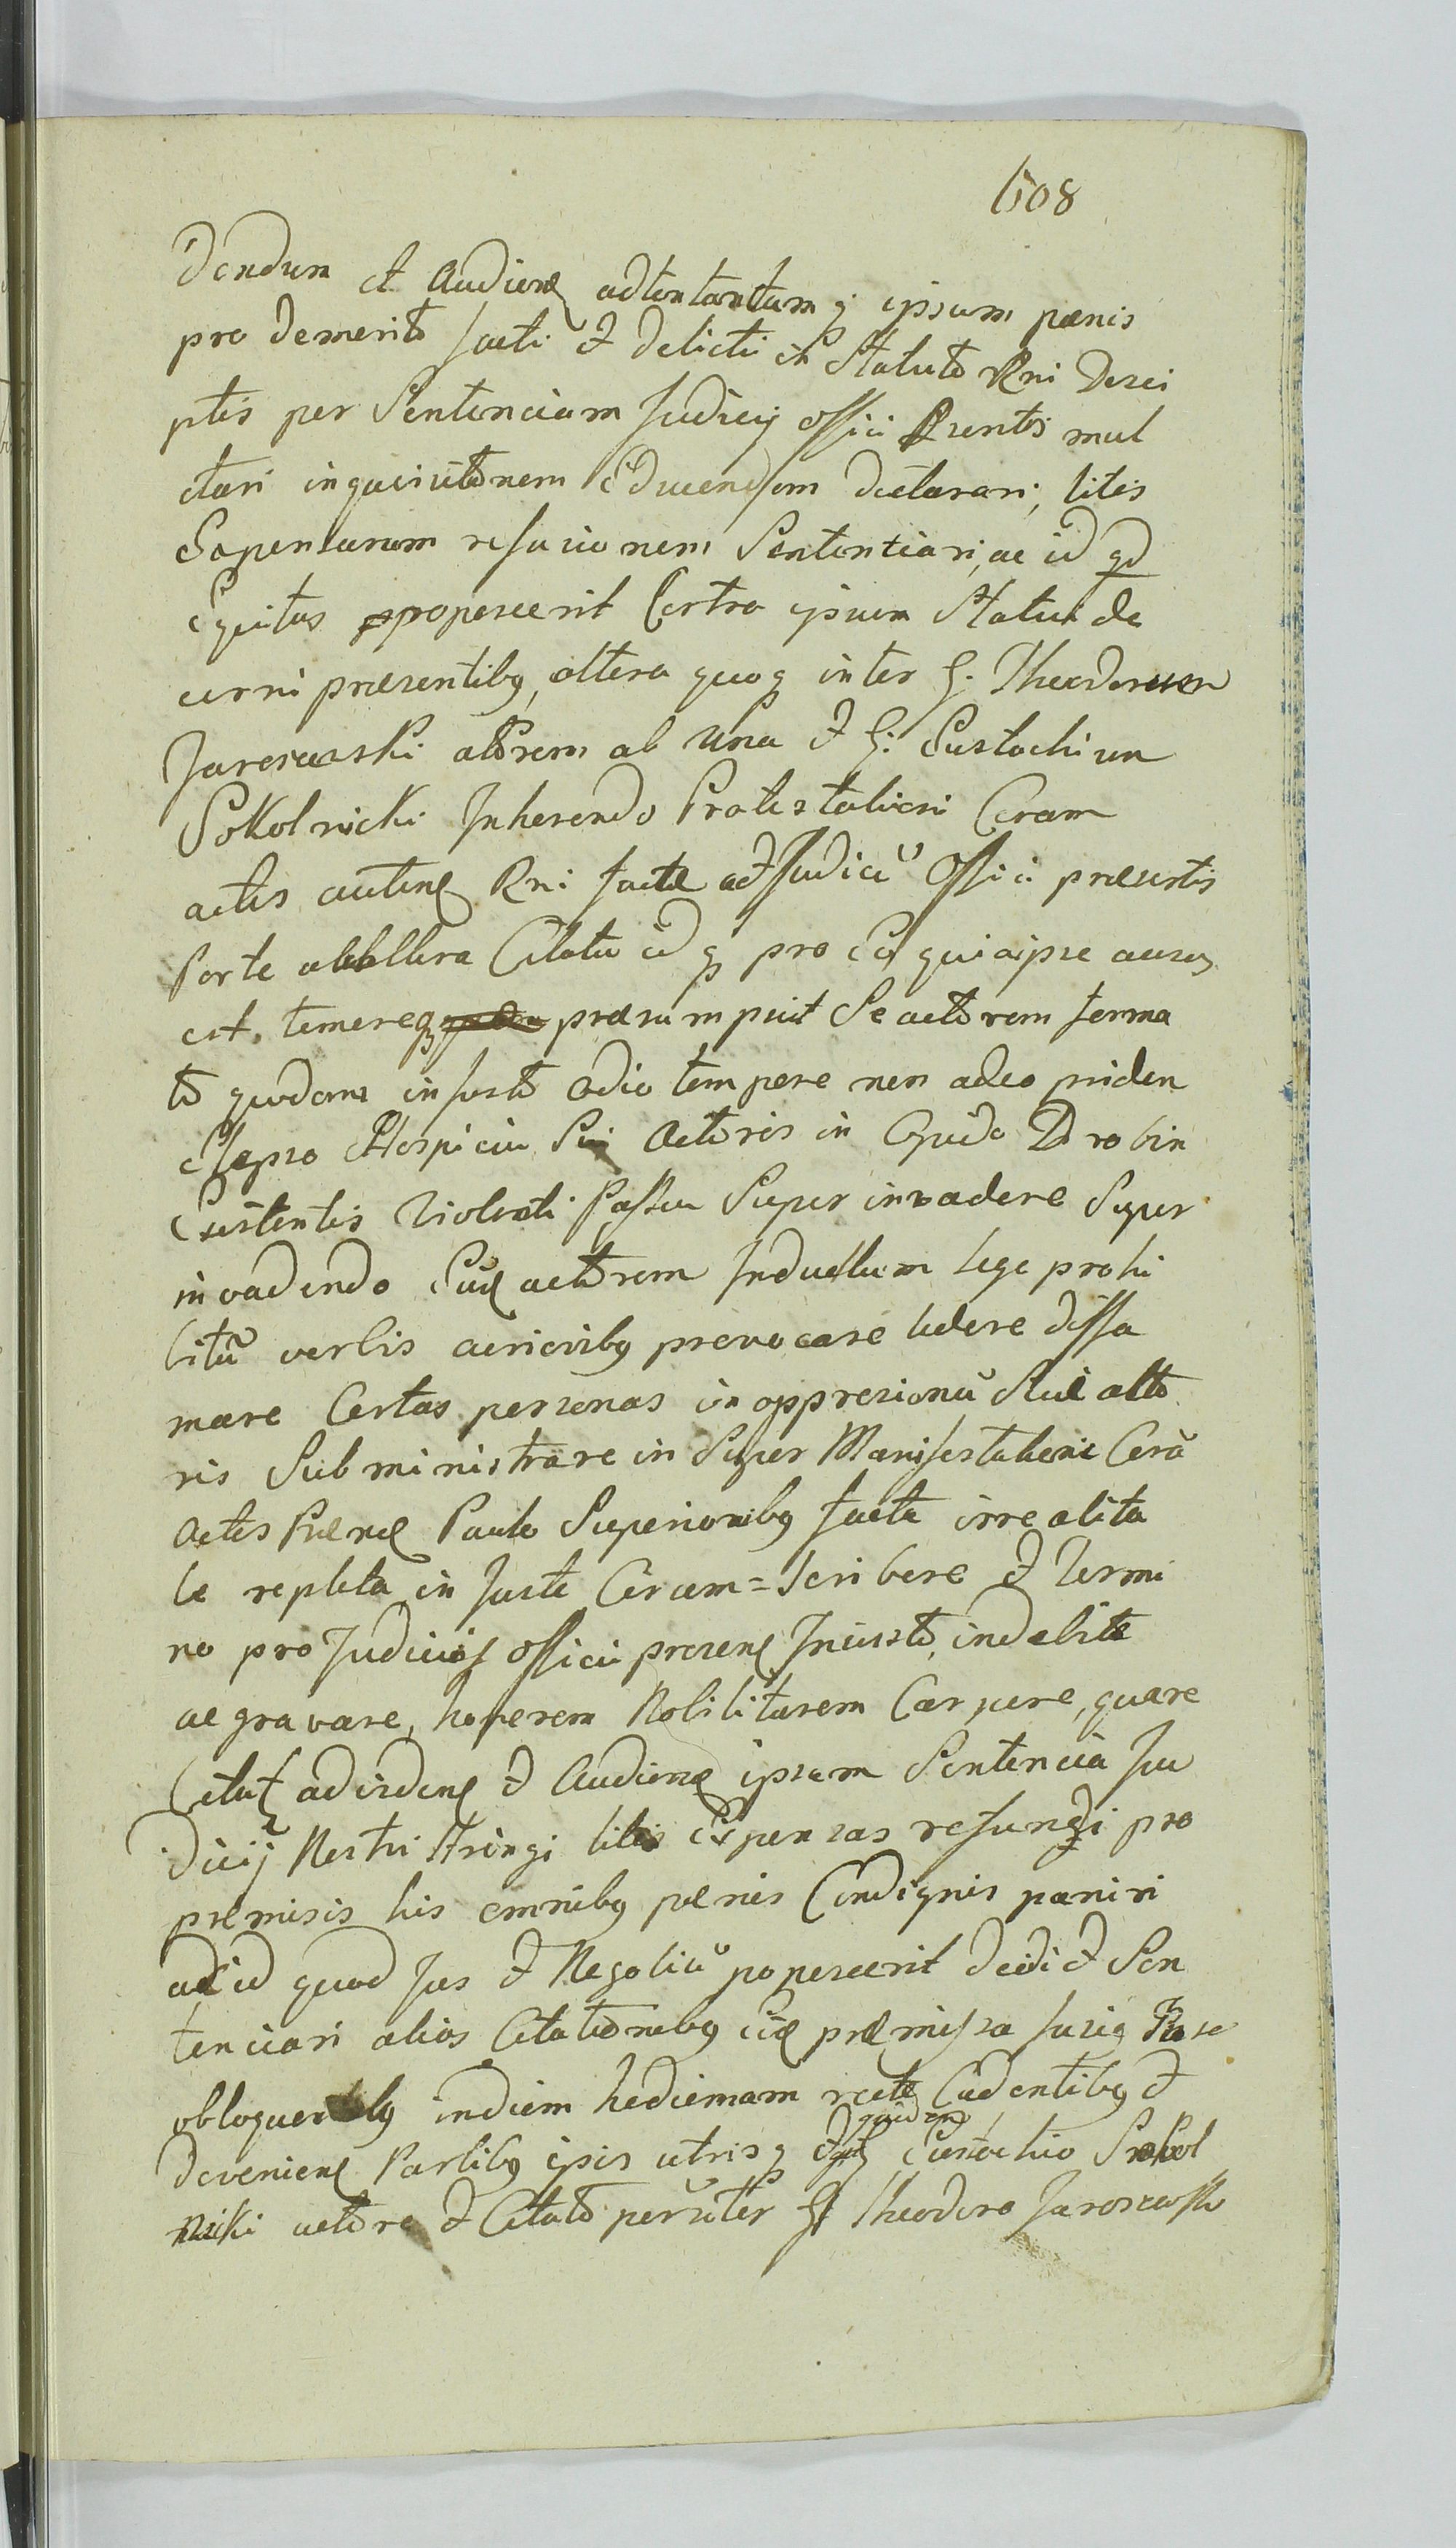 608
dendum et Audiend adtentantumq ipsum pænis
pro demerito facti et delicti in Statuto Rni Descri
ptis per Sentenciam Judicij Offici Præntis mul
ctari inquisitionem educendam declarari, litis
Expensarum refusionem Sententiari, ac id qd
Equitas popescerit Contra ipsum Statui de
cerni præsentibq, altera quoq inter G. Theodorum
Jarozewski actorem ab una et G. Eustachium
Sokolnicki Inherendo Protestationi Coram
actis autend Rni facta ad Judiciū Offici præsentis
Parte ab altera Citatū idq pro eo quia ipse ausus
est, temereq præsumpsit Se actorem forma
to quodam injusto odio tempore non adeo pridem
elapso Hospiciū Sui Actoris in Opido Drobin
Existentis Violenti Passu Super invadere Super
invadendo Eund actorem Induellum lege prohi
bitū verbis acrioribq provocare ledere diffa
mare Certas personas in oppresionū Sui acto
ris Subministrare in Super Manifestationē Corā
Actis Præne Paulo Superioribq facta irrealita
te repleta in Juste Circum=scribere et Termi
no pro Judicijs Officii presene Iniusto, indebite
aggravare, honorem Nobilitarem Carpere, quare
Citatq ad videne et Audiend ipsum Sentencia Ju
dicij Nostri Stringi litis Expensas refundi pro
premisis his omnibq pænis Condignis pæniri
ac id quod Jus et Negotiū poposcerit decidi et Sen
tenciari alias Citationibq
obloquentibq indiem hodiernam recte Cadentibq et
quidem
deveniend Partibq ipsis utrisq Eustachio Sokol
nicki actore et Citato periter G Theodoro Jarozewski